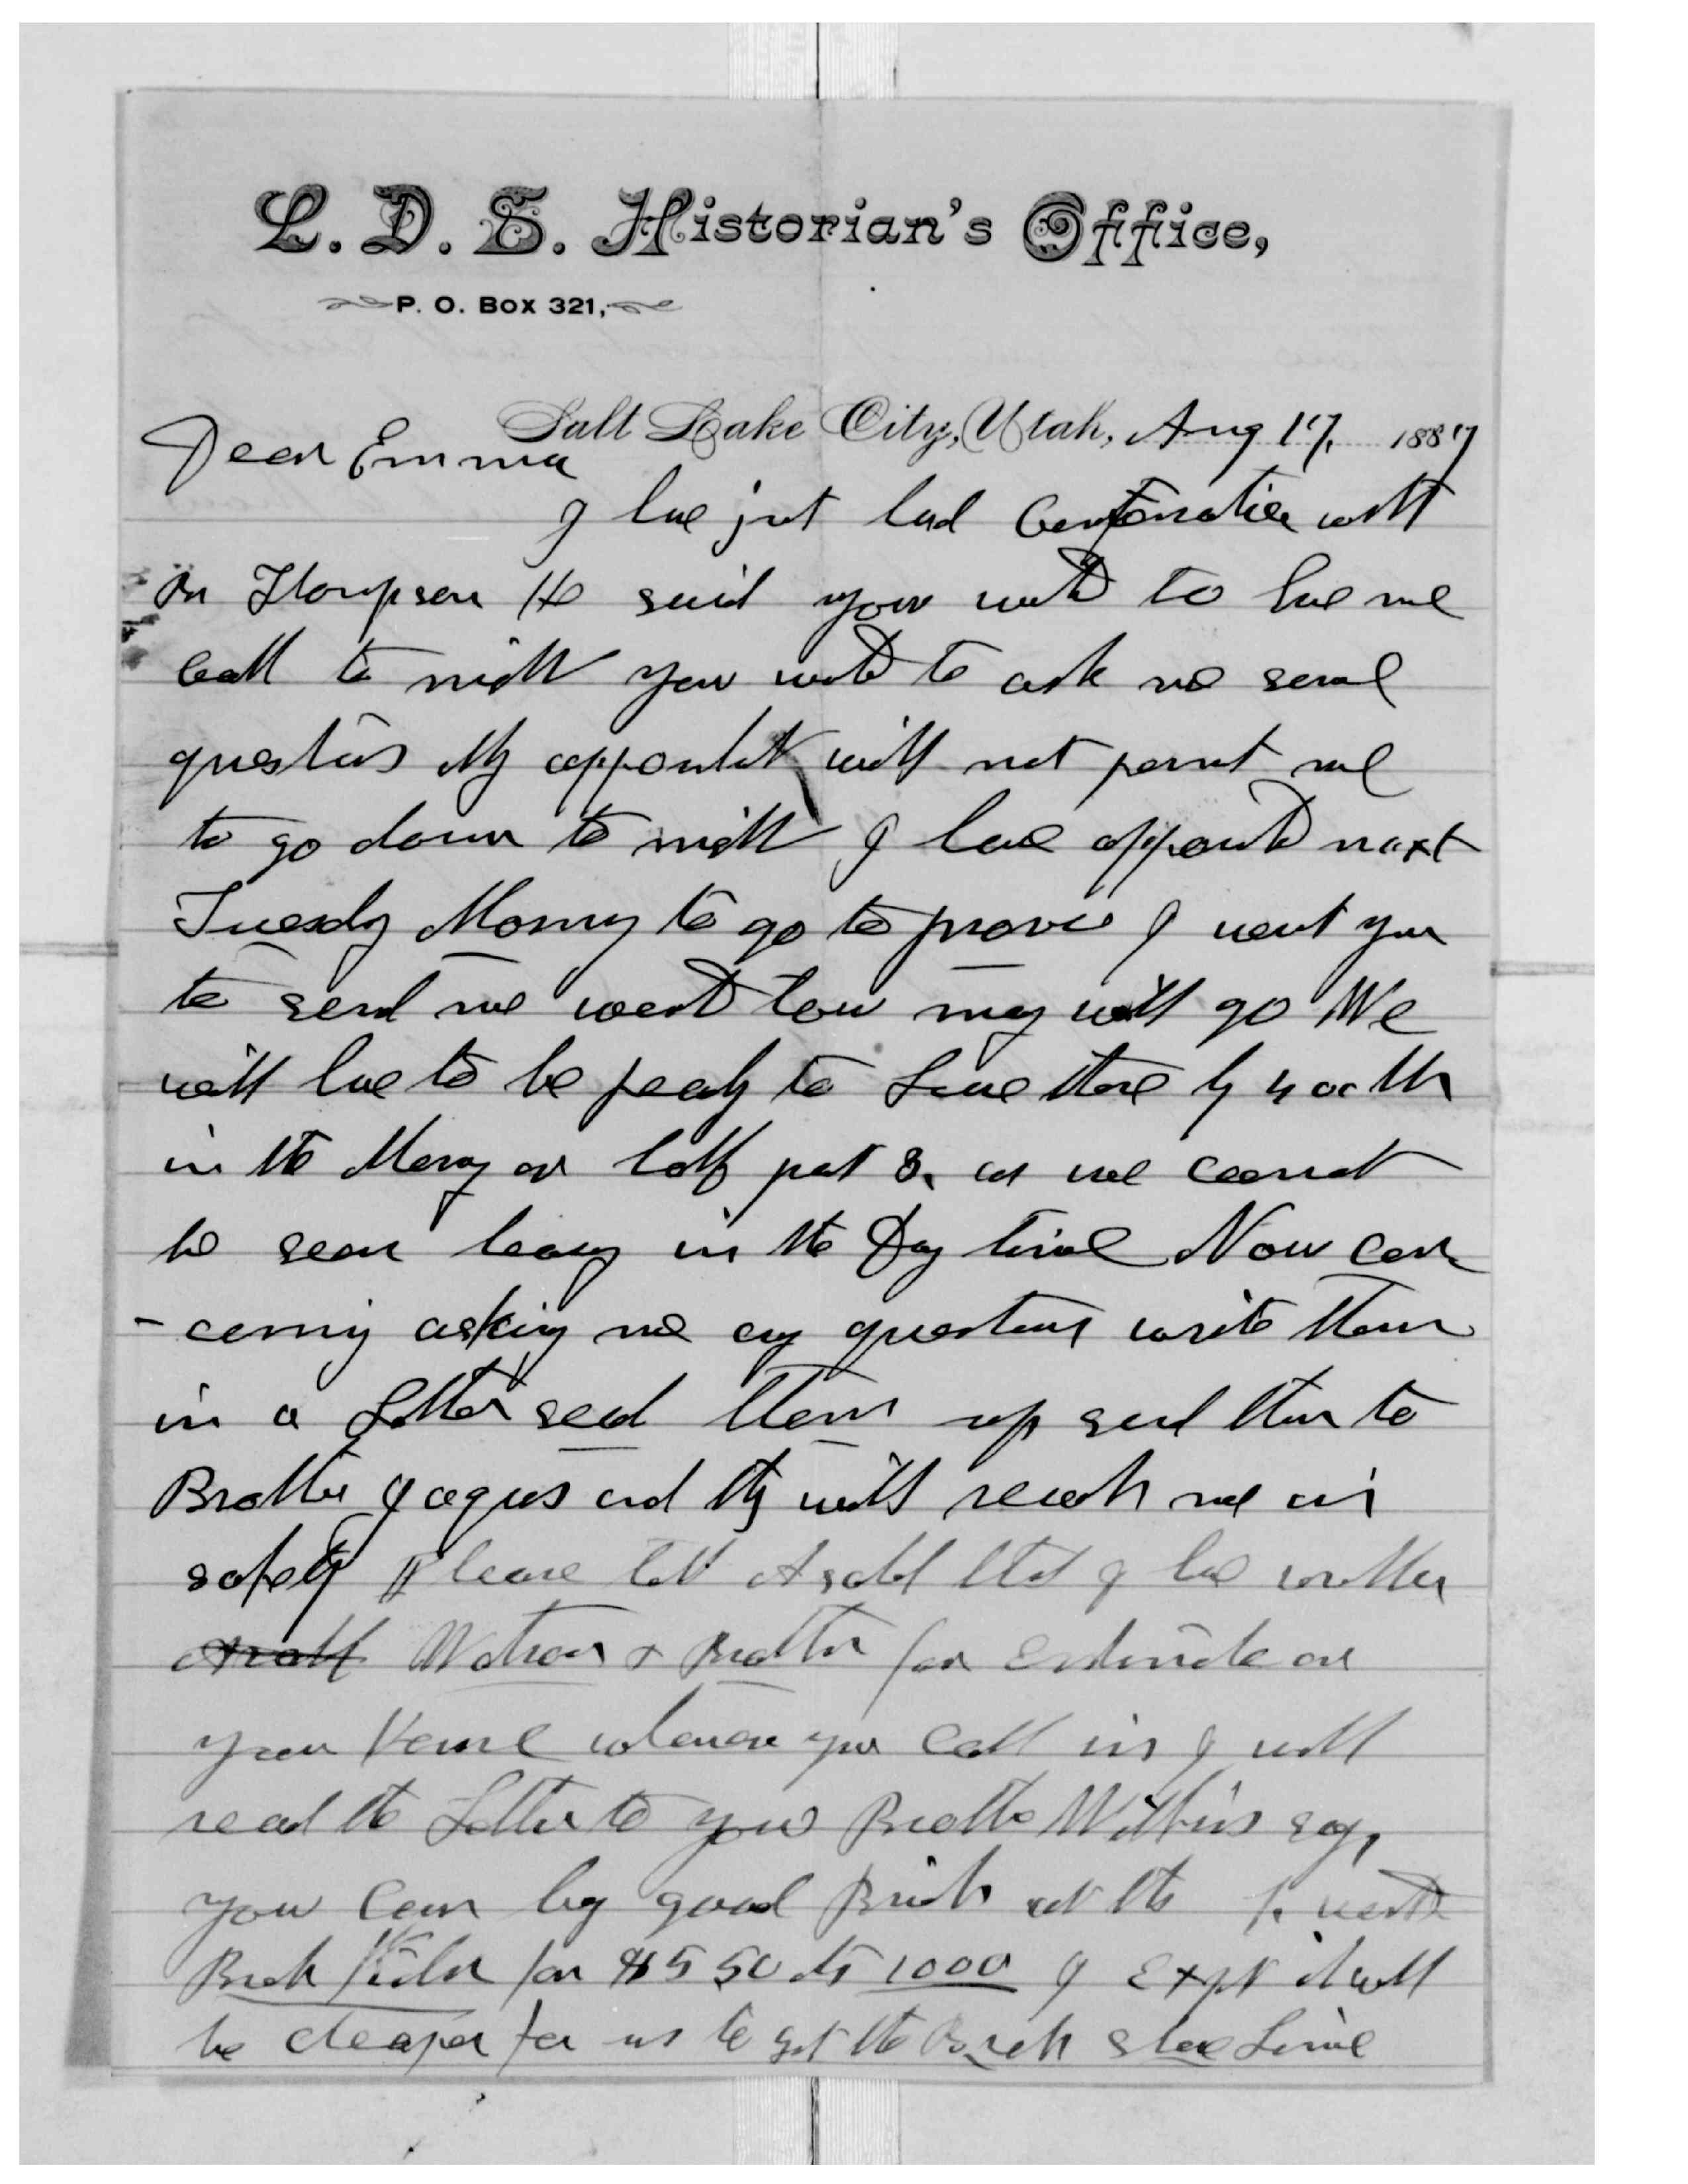 L. D. S. Historian's Office,
P. O. Box 321,
Salt Lake City, Utah, Aug 17, 1887
Dear Emma
I have just had Conversation with
Br Thompson He said you wantd to have me
call to night you wantd to ask me several
questions My appointmt will not permit me
to go down to night I have appointd next
Tuesdy Morning to go to provo I want you
to send me word how many will go We
will have to be ready to Leave there by 4 oclk
in the Morng or half past 3, as we cannot
be seen leavg in the Day time Now con
-cerning asking me any questions write them
in a Letter seal them up send them to
Brother Jaques and they will reach me in
safety Please tell Asahel that I have written
Watson & Brother for Estimate on
your House whenever you call in I will
read the Letter to you Brother Wilkins says
you can by good Brick at the
Brick kiln for $5 50 cts 1000 I Expet it will
be cheaper for us to get the Brick stone Lime